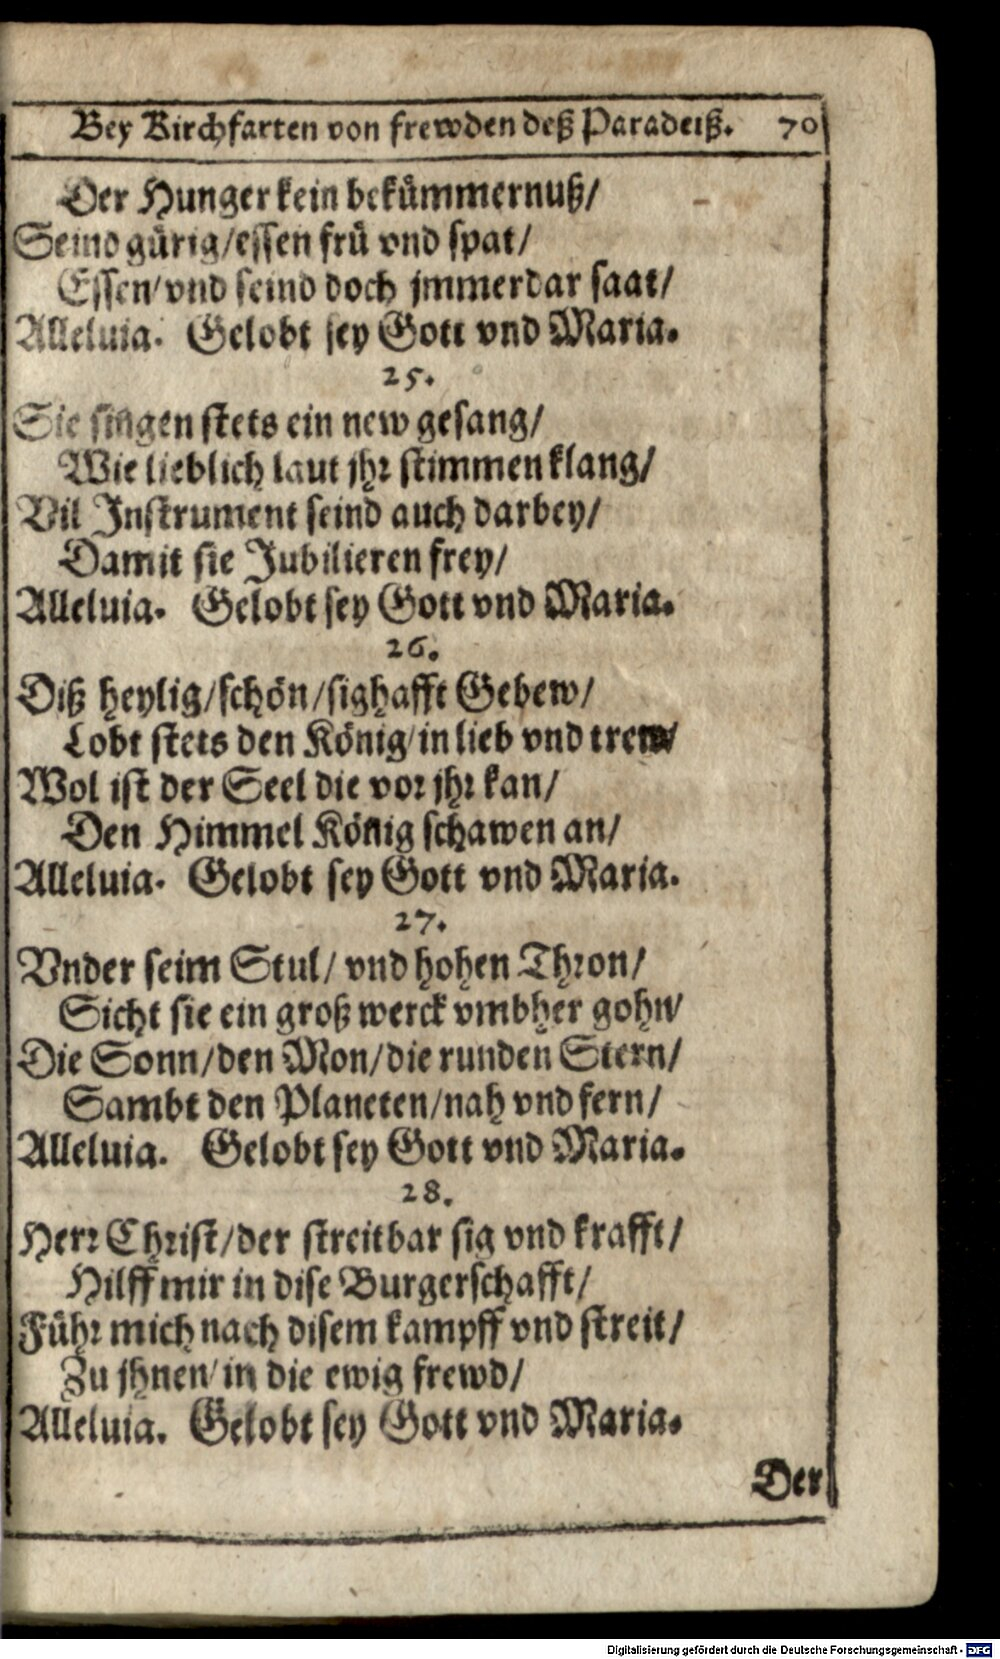 Bey Kirchfarten von frewden deß Paradeiß. 70
Der Hunger kein bekümmernuß/
Seind gürig/essen frü vnd spat/
Essen/vnd seind doch jmmerdar saat/
Alleluia. Gelobt sey Gott vnd Maria.
25.
Sie singen stets ein new gesang/
Wie lieblich laut jhr stimmen klang/
Vil Instrument seind auch darbey/
Damit sie Jubilieren frey/
Alleluia. Gelobt sey Gott vnd Maria.
26.
Diß heylig/schön/sighafft Gebew/
Lobt stets den König/in lieb vnd trew/
Wol ist der Seel die vor jhr kan/
Den Himmel König schawen an/
Alleluia. Gelobt sey Gott vnd Maria.
27.
Vnder seim Stul/ vnd hohen Thron/
Sicht sie ein groß werck vmbher gohn/
Die Sonn/den Mon/die runden Stern/
Sambt den Planeten/nah vnd fern/
Alleluia. Gelobt sey Gott vnd Maria.
28.
Herr Christ/der streitbar sig vnd krafft/
Hilff mir in dise Burgerschafft/
Führ mich nach disem kampff vnd streit/
Zu jhnen/in die ewig frewd/
Alleluia. Gelobt sey Gott vnd Maria.
Der
Digitalisierung gefördert durch die Deutsche Forschungsgemeinschaft - DFG